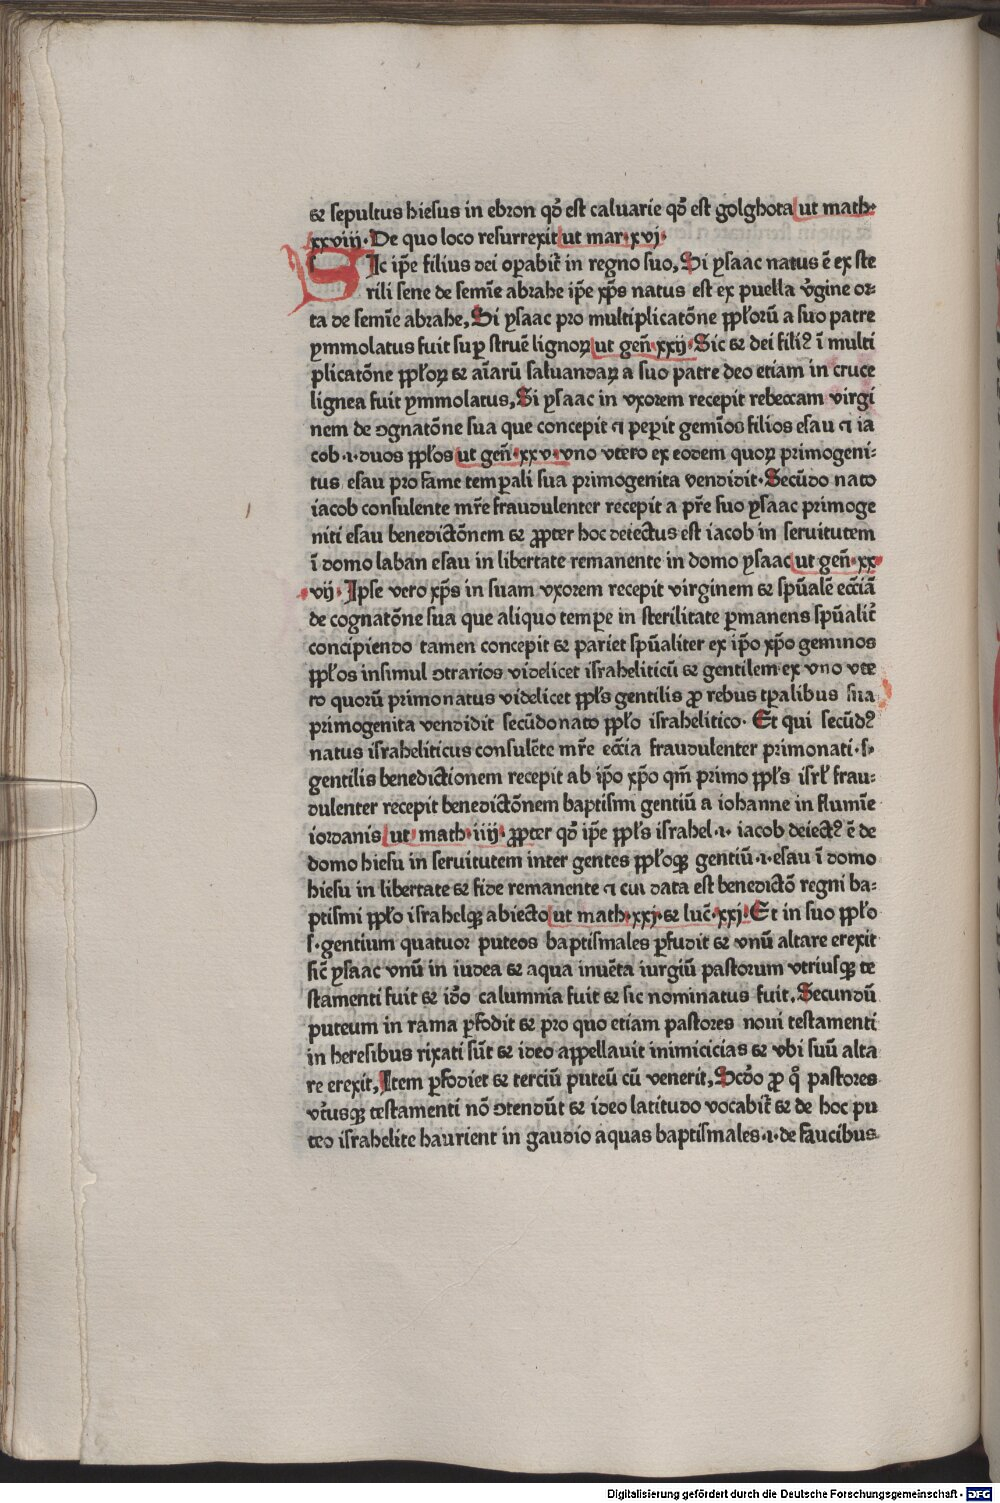 ⁊ sepultus hiesus in ebron qď est caluarie qď est golghota ut math·
xxviii· De quo loco resurrexit ut mar·xvj·
SIc ip̄e filius dei oꝑabit̃ in regno suo, Si ysaac natus ē ex ste
rili sene de semīe abrahe ip̄e xp̄s natus est ex puella v̓gine or-
ta de semīe abrahe, Si ysaac pro multiplicatōne ppl̓orū a suo patre
ymmolatus fuit suꝑ struē lignoꝝ ut geñ·xxij· Sic ⁊ dei filiꝰ ī multi
plicatōne ppl̓oꝝ ⁊ aīarū saluandaꝝ a suo patre deo etiam in cruce
lignea fuit ymmolatus, Si ysaac in vxorem recepit rebeccam virgi
nem de ↄgnatōne sua que concepit ⁊ peperit gemīos filios esau ⁊ ia
cob·i·duos ppl̓os ut geñ·xxv·vno vtero ex eodem quoꝝ primogeni-
tus esau pro fame temꝑali sua primogenita vendidit· Secūdo nato
iacob consulente mr̄e fraudulenter recepit a pr̄e suo ysaac primoge
niti esau benedictōnem ⁊ ꝓpter hoc deiectus est iacob in seruitutem
ī domo laban esau in libertate remanente in domo ysaac ut geñ·xx
vij· Ipse vero xp̄s in suam vxorem recepit virginem ⁊ sp̄ualē eccīā
de cognatōne sua que aliquo tempe in sterilitate ꝑmanens sp̄ualit̃
concipiendo tamen concepit ⁊ pariet sp̄ualiter ex ip̄o xp̄o geminos
ppl̓os insimul ↄtrarios videlicet israheliticū ⁊ gentilem ex vno vte
ro quorū primonatus videlicet ppl̓s gentilis ꝓ rebus tꝑalibus sua
primogenita vendidit secūdonato ppl̓o israhelitico· Et qui secūdꝰ
natus israheliticus consulēte mr̄e eccīa fraudulenter primonati·s·
gentilis benedictionem recepit ab ip̄o xp̄o qm̄ primo ppl̓s isrl̓ frau-
dulenter recepit benedictōnem baptismi gentiū a iohanne in flumīe
iordanis ut math·iiij· ꝓpter qď ip̄e ppl̓s israhel·i· iacob deiectꝰ ē de
domo hiesu in seruitutem inter gentes ppl̓oqꝫ gentiū·i·esau ī domo
hiesu in libertate ⁊ fide remanente ⁊ cui data est benedictō regni ba-
ptismi ppl̓o israhelqꝫ abiecto ut math·xxj·⁊ luc̄·xxj· Et in suo ppl̓o
s·gentium quatuor puteos baptismales ꝑfudit ⁊ vnū altare erexit
sic̄ ysaac vnū in iudea ⁊ aqua inuēta iurgiū pastorum vtriusqꝫ te
stamenti fuit ⁊ iďo calumnia fuit ⁊ sic nominatus fuit. Secundū
puteum in rama ꝑfodit ⁊ pro quo etiam pastores noui testamenti
in heresibus rixati sūt ⁊ ideo appellauit inimicicias ⁊ vbi suū alta
re erexit, Item ꝑfodiet ⁊ terciū puteū cū venerit, Scďo ꝓ q̊ pastores
vt̓usqꝫ testamenti nō ↄtendūt ⁊ ideo latitudo vocabit̃ ⁊ de hoc pu
teo israhelite haurient in gaudio aquas baptismales·i·de faucibus
Digitalisierung gefördert durch die Deutsche Forschungsgemeinschaft - DFG